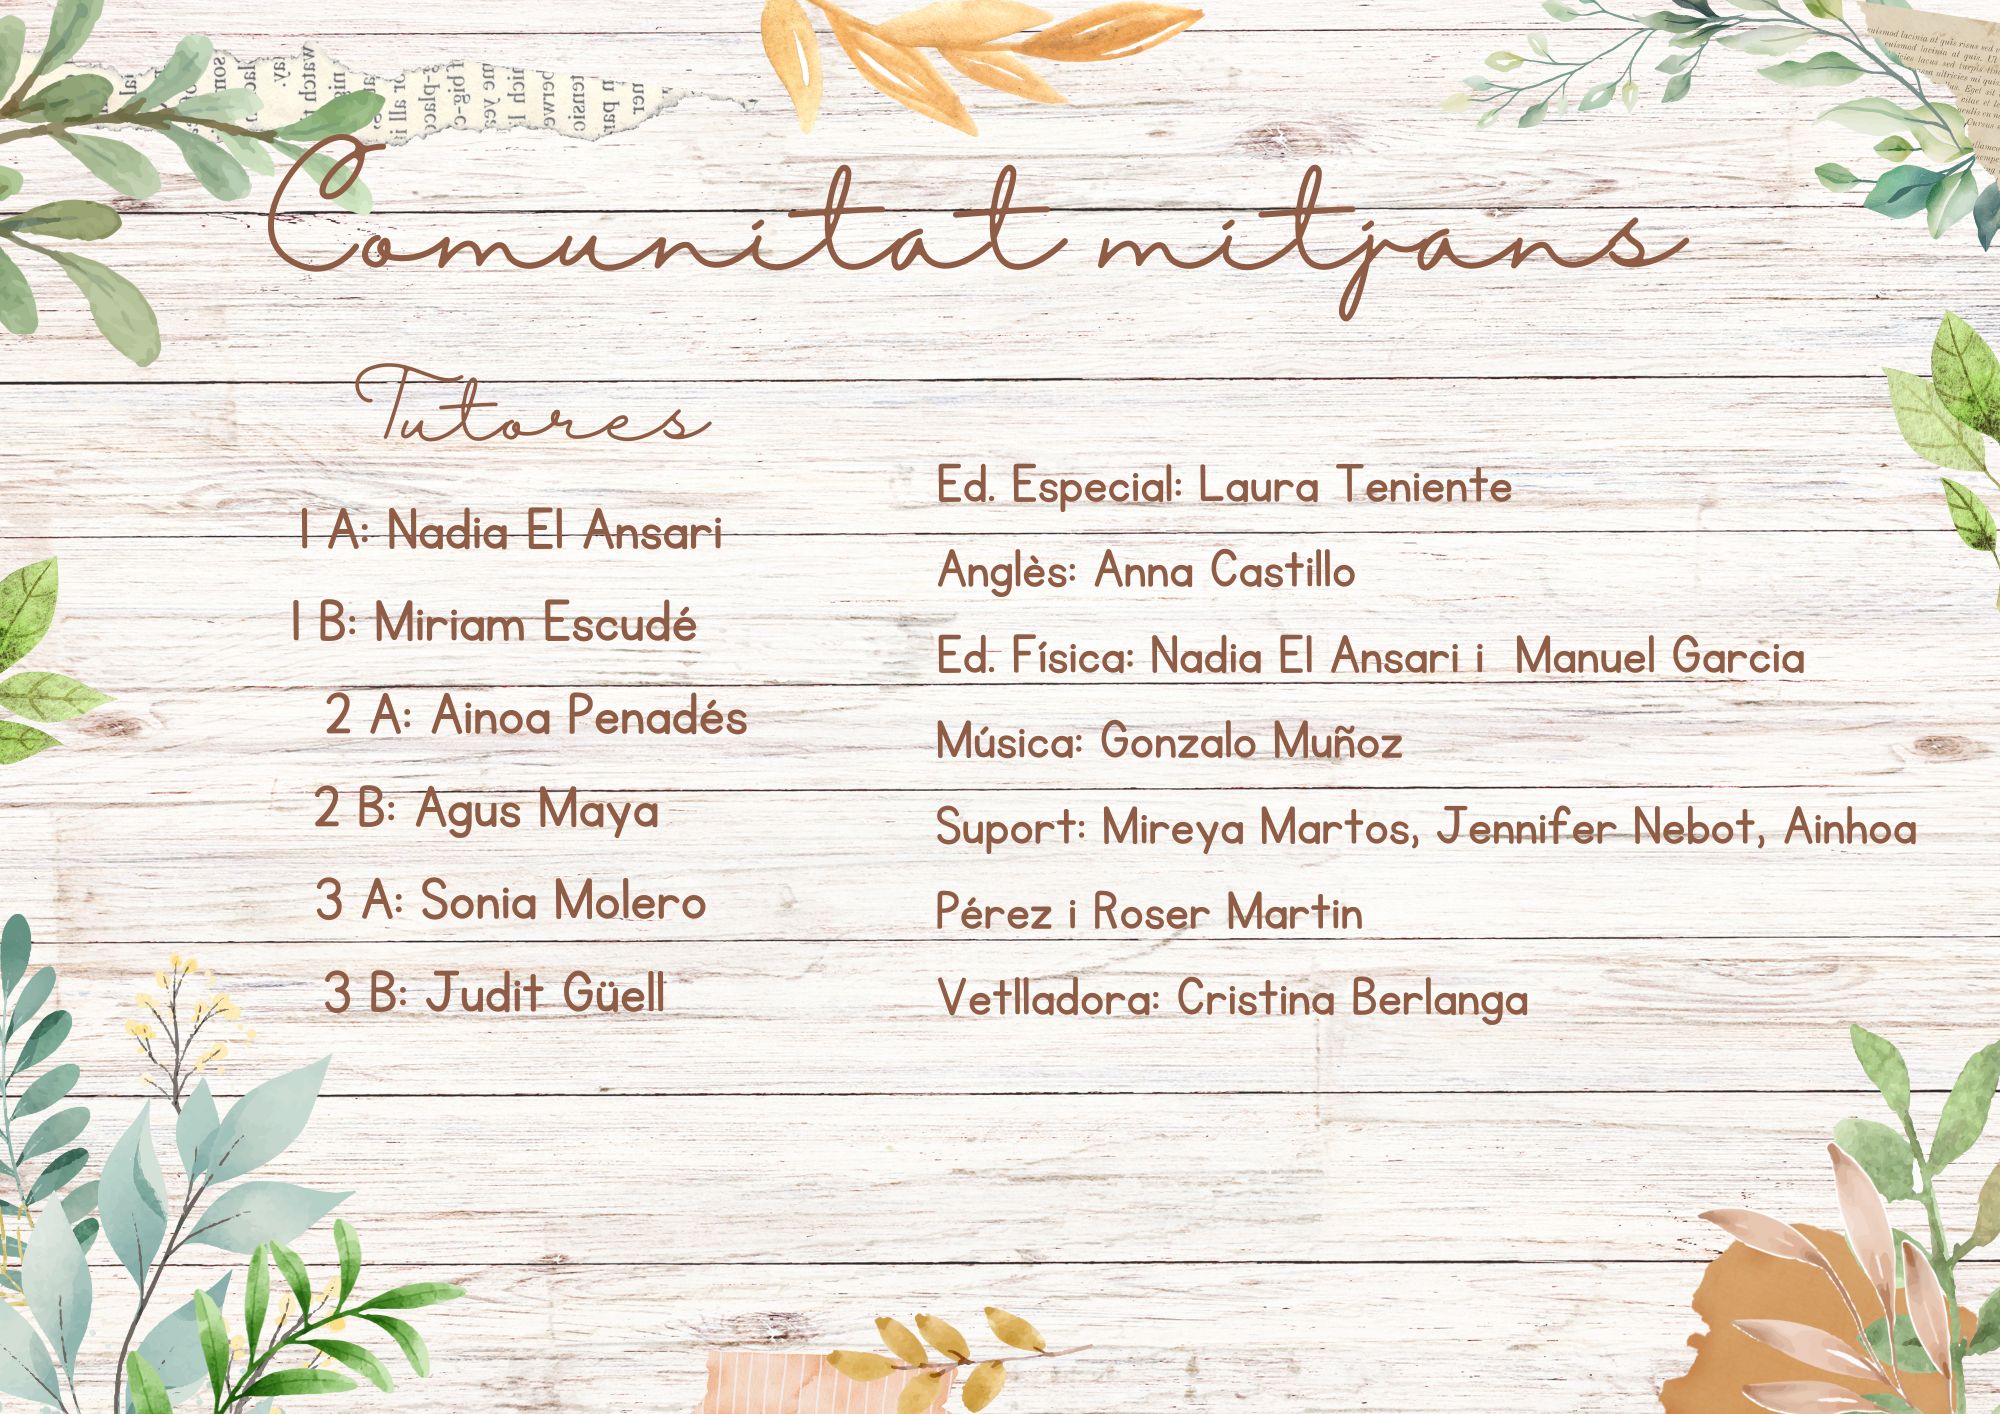 Comunitat mitjans
Tutores
1 A: Nadia El Ansari
1 B: Miriam Escudé
2 A: Ainoa Penadés
2 B: Agus Maya
3 A: Sonia Molero
3 B: Judit Güell
Ed. Especial: Laura Teniente
Anglès: Anna Castillo
Ed. Física: Nadia El Ansari i Manuel Garcia
Música: Gonzalo Muñoz
Suport: Mireya Martos, Jennifer Nebot, Ainhoa
Pérez i Roser Martin
Vetlladora: Cristina Berlanga